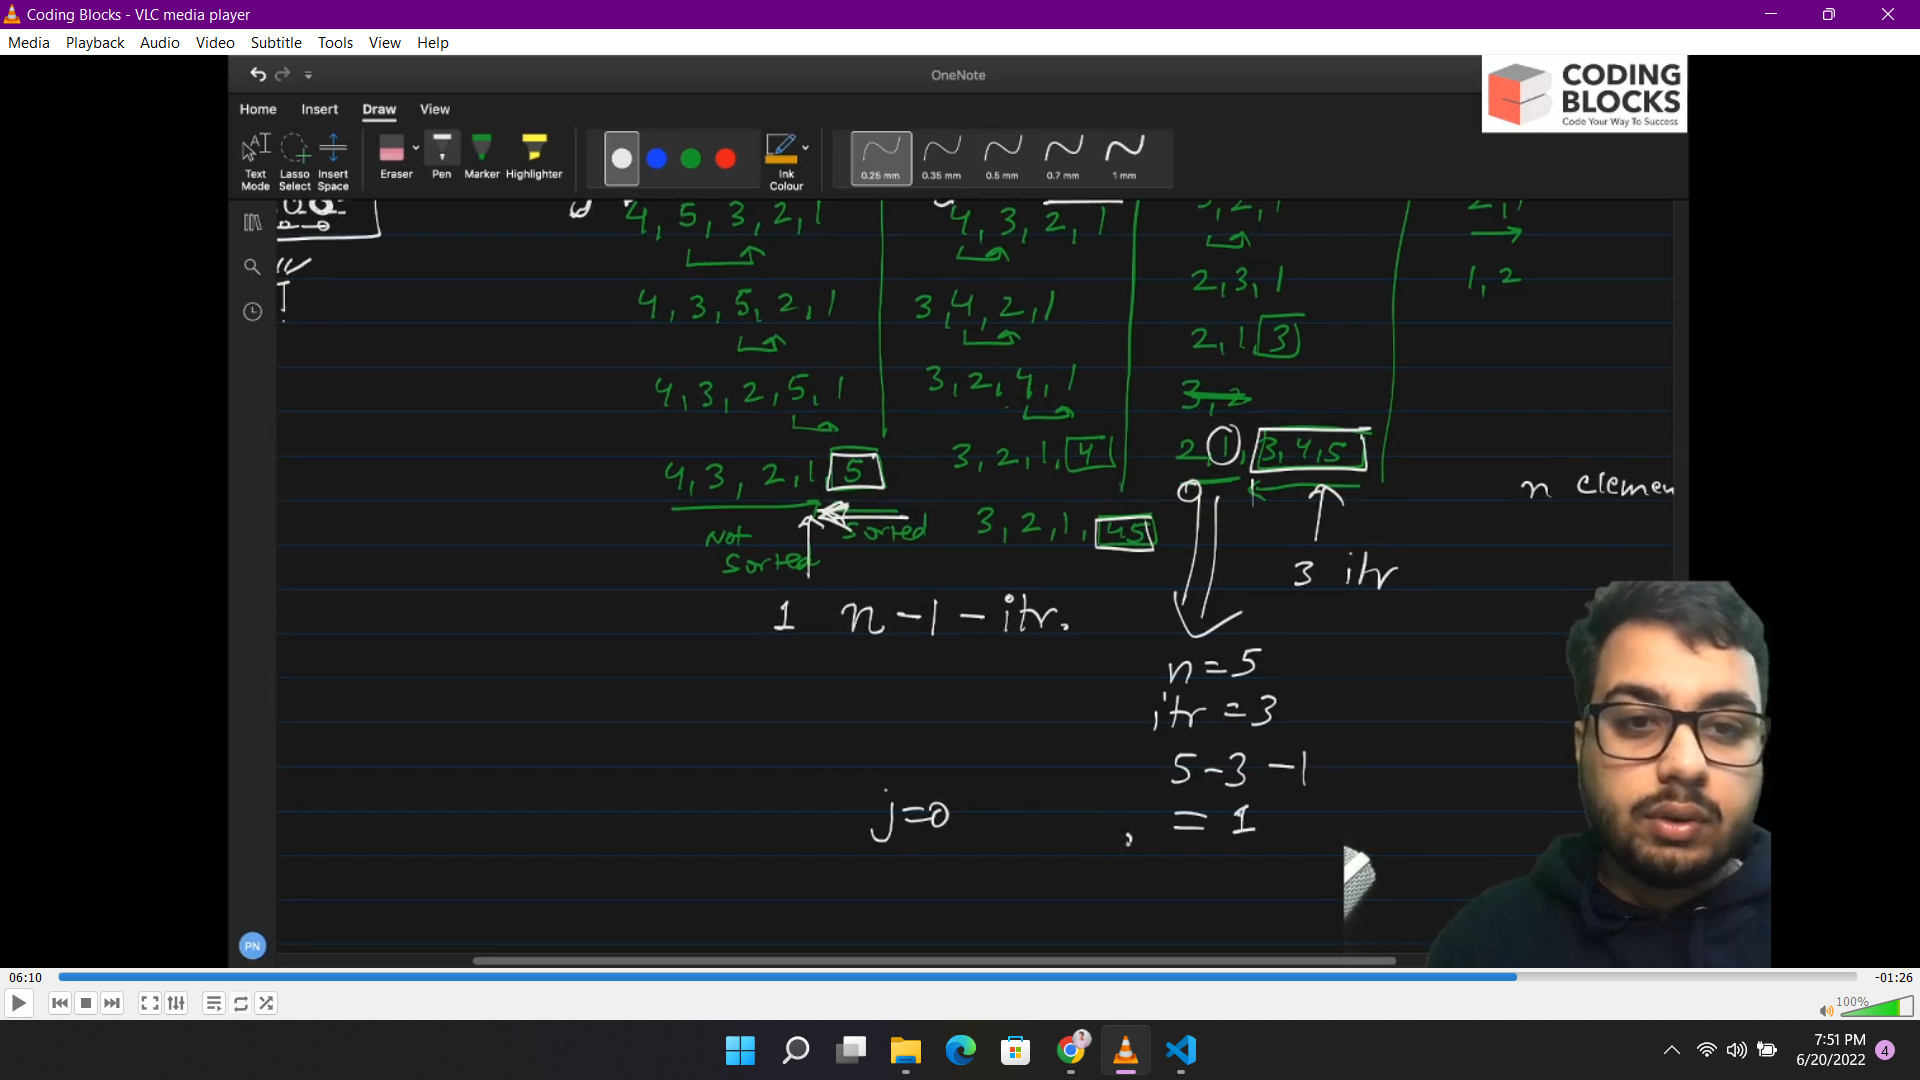 Coding Blocks - VLC media player
Media Playback Audio Video Subtitle Tools View Help
OneNote
CODING
BLOCKS
Code Your Way To Success
Home Insert Draw View
Text Mode
Lasso Select
Insert Space
Eraser
Pen
Marker
Highlighter
Ink Colour
0.25 mm
0.35 mm
0.5 mm
0.7 mm
1 mm
4, 5, 3, 2, 1
4, 3, 5, 2, 1
4, 3, 2, 5, 1
4, 3, 2, 1 5
Not Sorted
Sorted
4, 3, 2, 1
3, 4, 2, 1
3, 2, 4, 1
3, 2, 1, 4
3, 2, 1, 45
3, 2, 1
2, 3, 1
2, 1, 3
3, 2
2, 1, 3, 4, 5
2, 1
1, 2
n elemen
3 itr
1 n - 1 - itr.
n = 5
itr = 3
5 - 3 - 1
= 1
j = 0 ,
PN
06:10
-01:26
100%
7:51 PM
6/20/2022
4